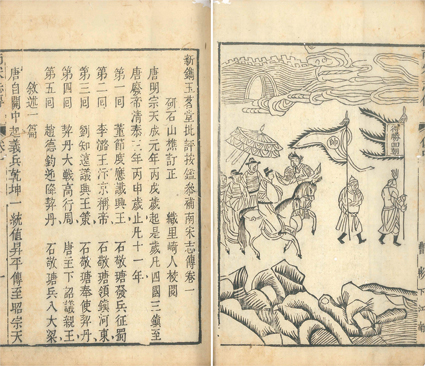 新鐫玉茗堂批評按鑑參補南宋志傳卷一
研石山樵訂正
織里畸人校閱
唐明宗天成元年丙戌歲起是歲凡四國三鎮至
唐廢帝清泰三年丙申歲止凡十一年
第一回 董節度應讖興王 石敬瑭發兵征蜀
第二回 李潞王汴京稱帝 石敬瑭領鎮河東
第三回 劉知遠議興王策 石敬瑭奉使契丹
第四回 契丹大戰高行周 唐主下詔議親王
第五回 趙德鈞逸降契丹 石敬瑭兵入大梁
敘述一篇
唐自關中起義兵乾坤一統值昇平傳至昭宗天